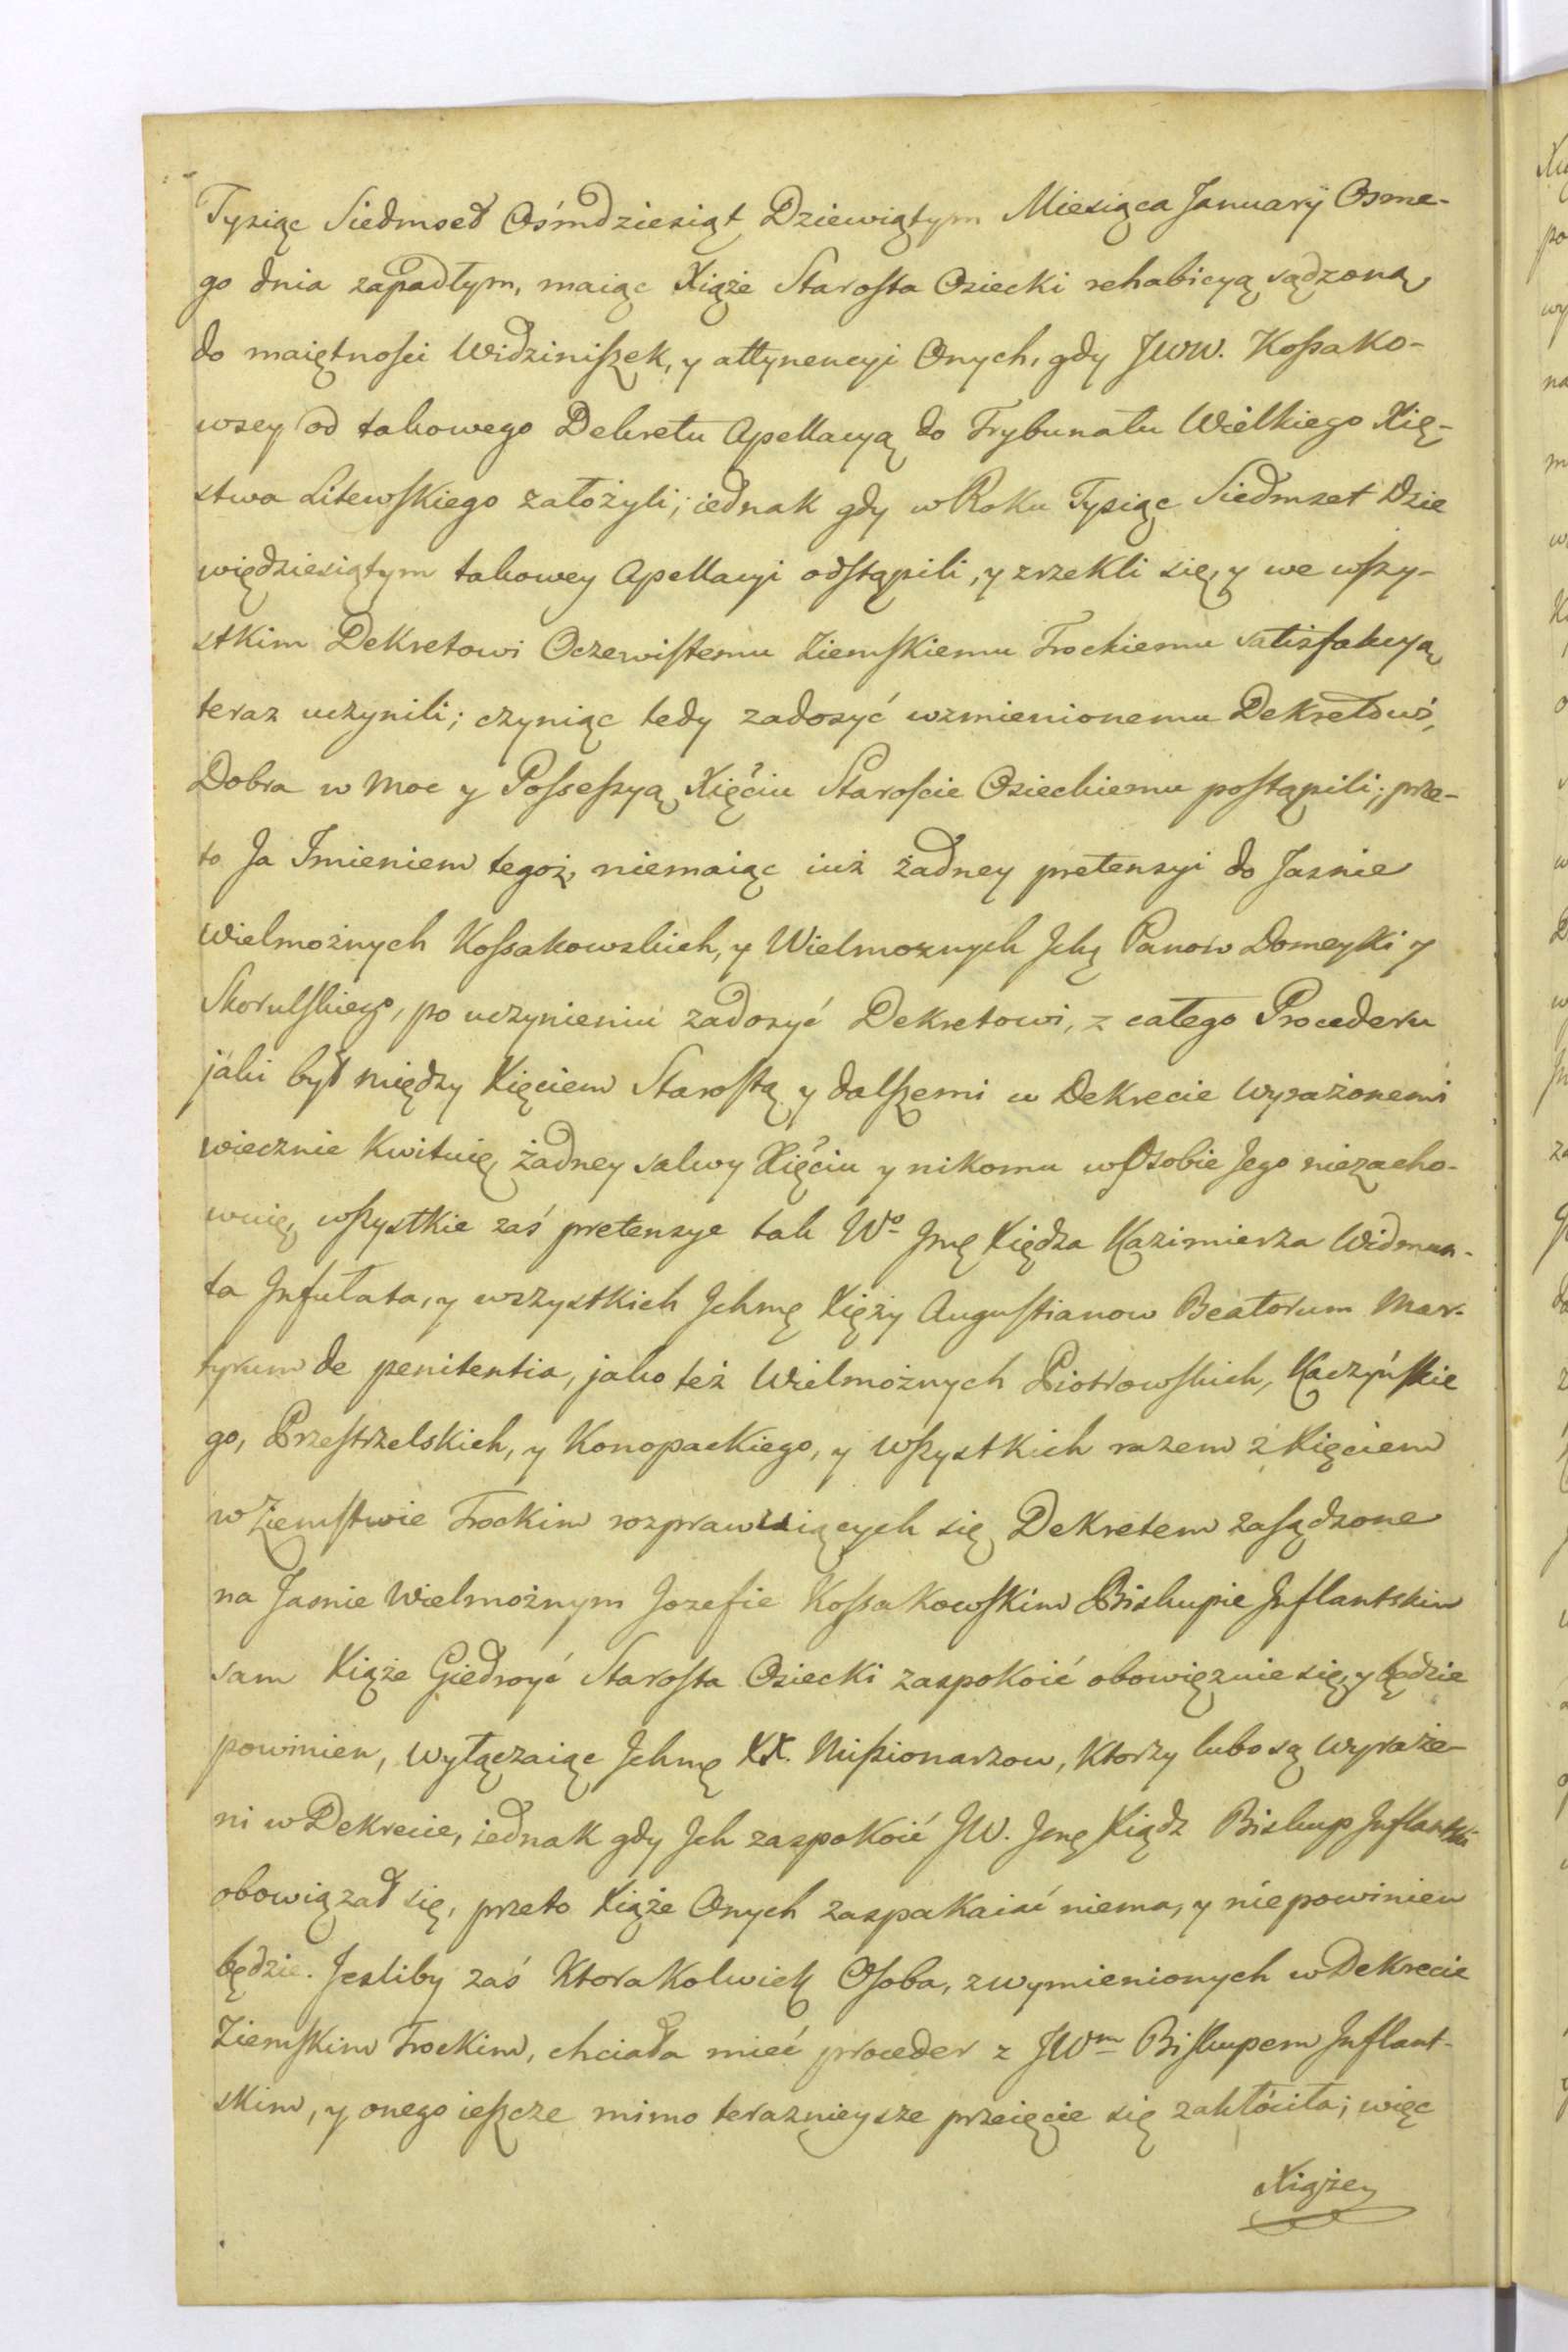 Tysiąc Siedmset Ośmdziesiąt Dziewiątym Miesiąca Januarÿ Osme-
go dnia zapadłym, maiąc Xiąże Starosta Osiecki rehabicyą sądzoną
do maiętnosci Widziniszek, y attynencyi Onych, gdy JWW. Kossako-
wscy od takowego Dekretu Apellacyą do Trybunału Wielkiego Xię-
stwa Litewskiego założyli; iednak gdy w Roku Tysiąc Siedmset Dzie
więdziesiątym takowey Apellacyi odstąpili, y zrzekli się, y we wszy-
stkim Dekretowi Oczewistemu Ziemskiemu Trockiemu satisfakcyą
teraz uczynili; czyniąc tedy zadosyć wzmienionemu Dekretowi,
Dobra w Moc y Possessyą Xięciu Staroscie Osieckiemu postąpili; prze-
to Ja Imieniem tegoż, niemaiąc iuż żadney pretensyi do Jasnie
Wielmożnych Kossakowskich, y Wielmoznych Ichę Panow Domeyki y
Skorulskiego, po uczynieniu zadosyć Dekretowi, z całego Procederu
jaki był między Xięciem Starostą y dalszemi w Dekrecie wyrażonemi
wiecznie Kwituię, żadney salwy Xięciu y nikomu w Osobie Jego niezacho-
wuię, wszystkie zaś pretensye tak Wo Jmę Xiędza Kazimierza Widmun-
ta Infułata, y wszystkich Ichmę Xięży Augustianow Beatorum Mar-
tyrum de penitentia, jako też Wielmożnych Piotrowskich, Kaczyńskie
go, Przestrzelskich, y Konopackiego, y wszystkich razem z Xięciem
w Ziemstwie Trockim rozprawuiących się Dekretem zasądzone
na Jasnie Wielmożnym Jozefie Kossakowskim Biskupie Inflantskim
sam Xiąże Giedroyć Starosta Osiecki zaspokoić obowięzuie się, y będzie
powinien, wyłączaiąc Ichmę XX. Missionarzow, Ktorzy lubo są wyraże-
ni w Dekrecie, iednak gdy Ich zaspokoić JW. Jmę Xiądz Biskup Inflantski
obowiązał się, przeto Xiąże Onych zaspakaiać niema, y niepowinien
będzie. Jesliby zaś Ktorakolwiek Osoba, z wymienionych w Dekrecie
Ziemskim Trockim, chciała mieć proceder z JWm Biskupem Inflant-
skim, y onego ieszcze mimo terazнieysze przeięcie się zakłóciła; więc
Xiąże